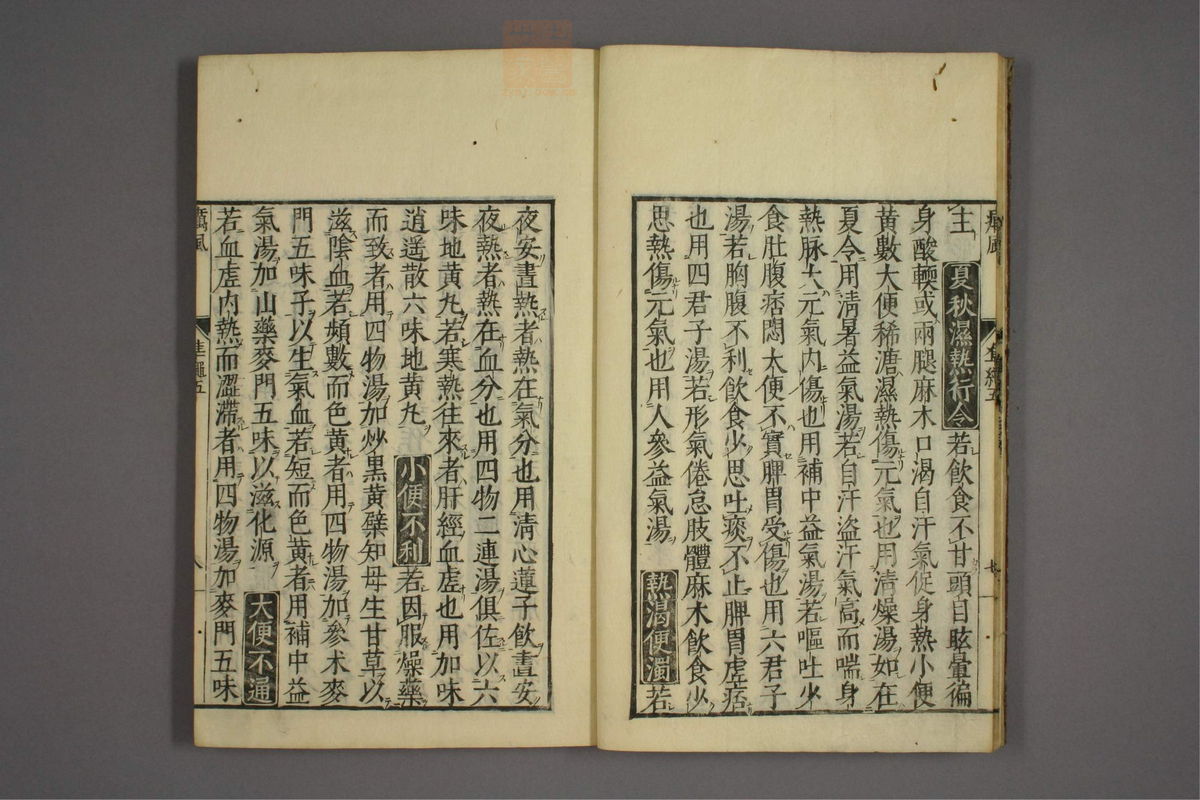 主 夏秋濕熱行令 若飲食不甘頭目眩暈徧
身酸軟或兩腿麻木口渴自汗氣促身熱小便
黃數大便稀溏濕熱傷元氣也用清燥湯如在
夏令用清暑益氣湯若自汗盜汗氣高而喘身
熱脉大元氣內傷也用補中益氣湯若嘔吐少
食肚腹痞悶大便不實脾胃受傷也用六君子
湯若胸腹不利飲食少思吐痰不止脾胃虛痞
也用四君子湯若形氣倦怠肢體麻木飲食少
思熱傷元氣也用人參益氣湯 熱渴便濁 若
夜安晝熱者熱在氣分也用清心蓮子飲晝安
夜熱者熱在血分也用四物二連湯俱佐以六
味地黃丸若寒熱往來者肝經血虛也用加味
逍遥散六味地黃丸 小便不利 若因服燥藥
而致者用四物湯加炒黑黃檗知母生甘草以
滋陰血若頻數而色黃者用四物湯加參术麥
門五味子以生氣血若短而色黃者用補中益
氣湯加山藥麥門五味以滋化源 大便不通
若血虛內熱而澀滯者用四物湯加麥門五味
癘風